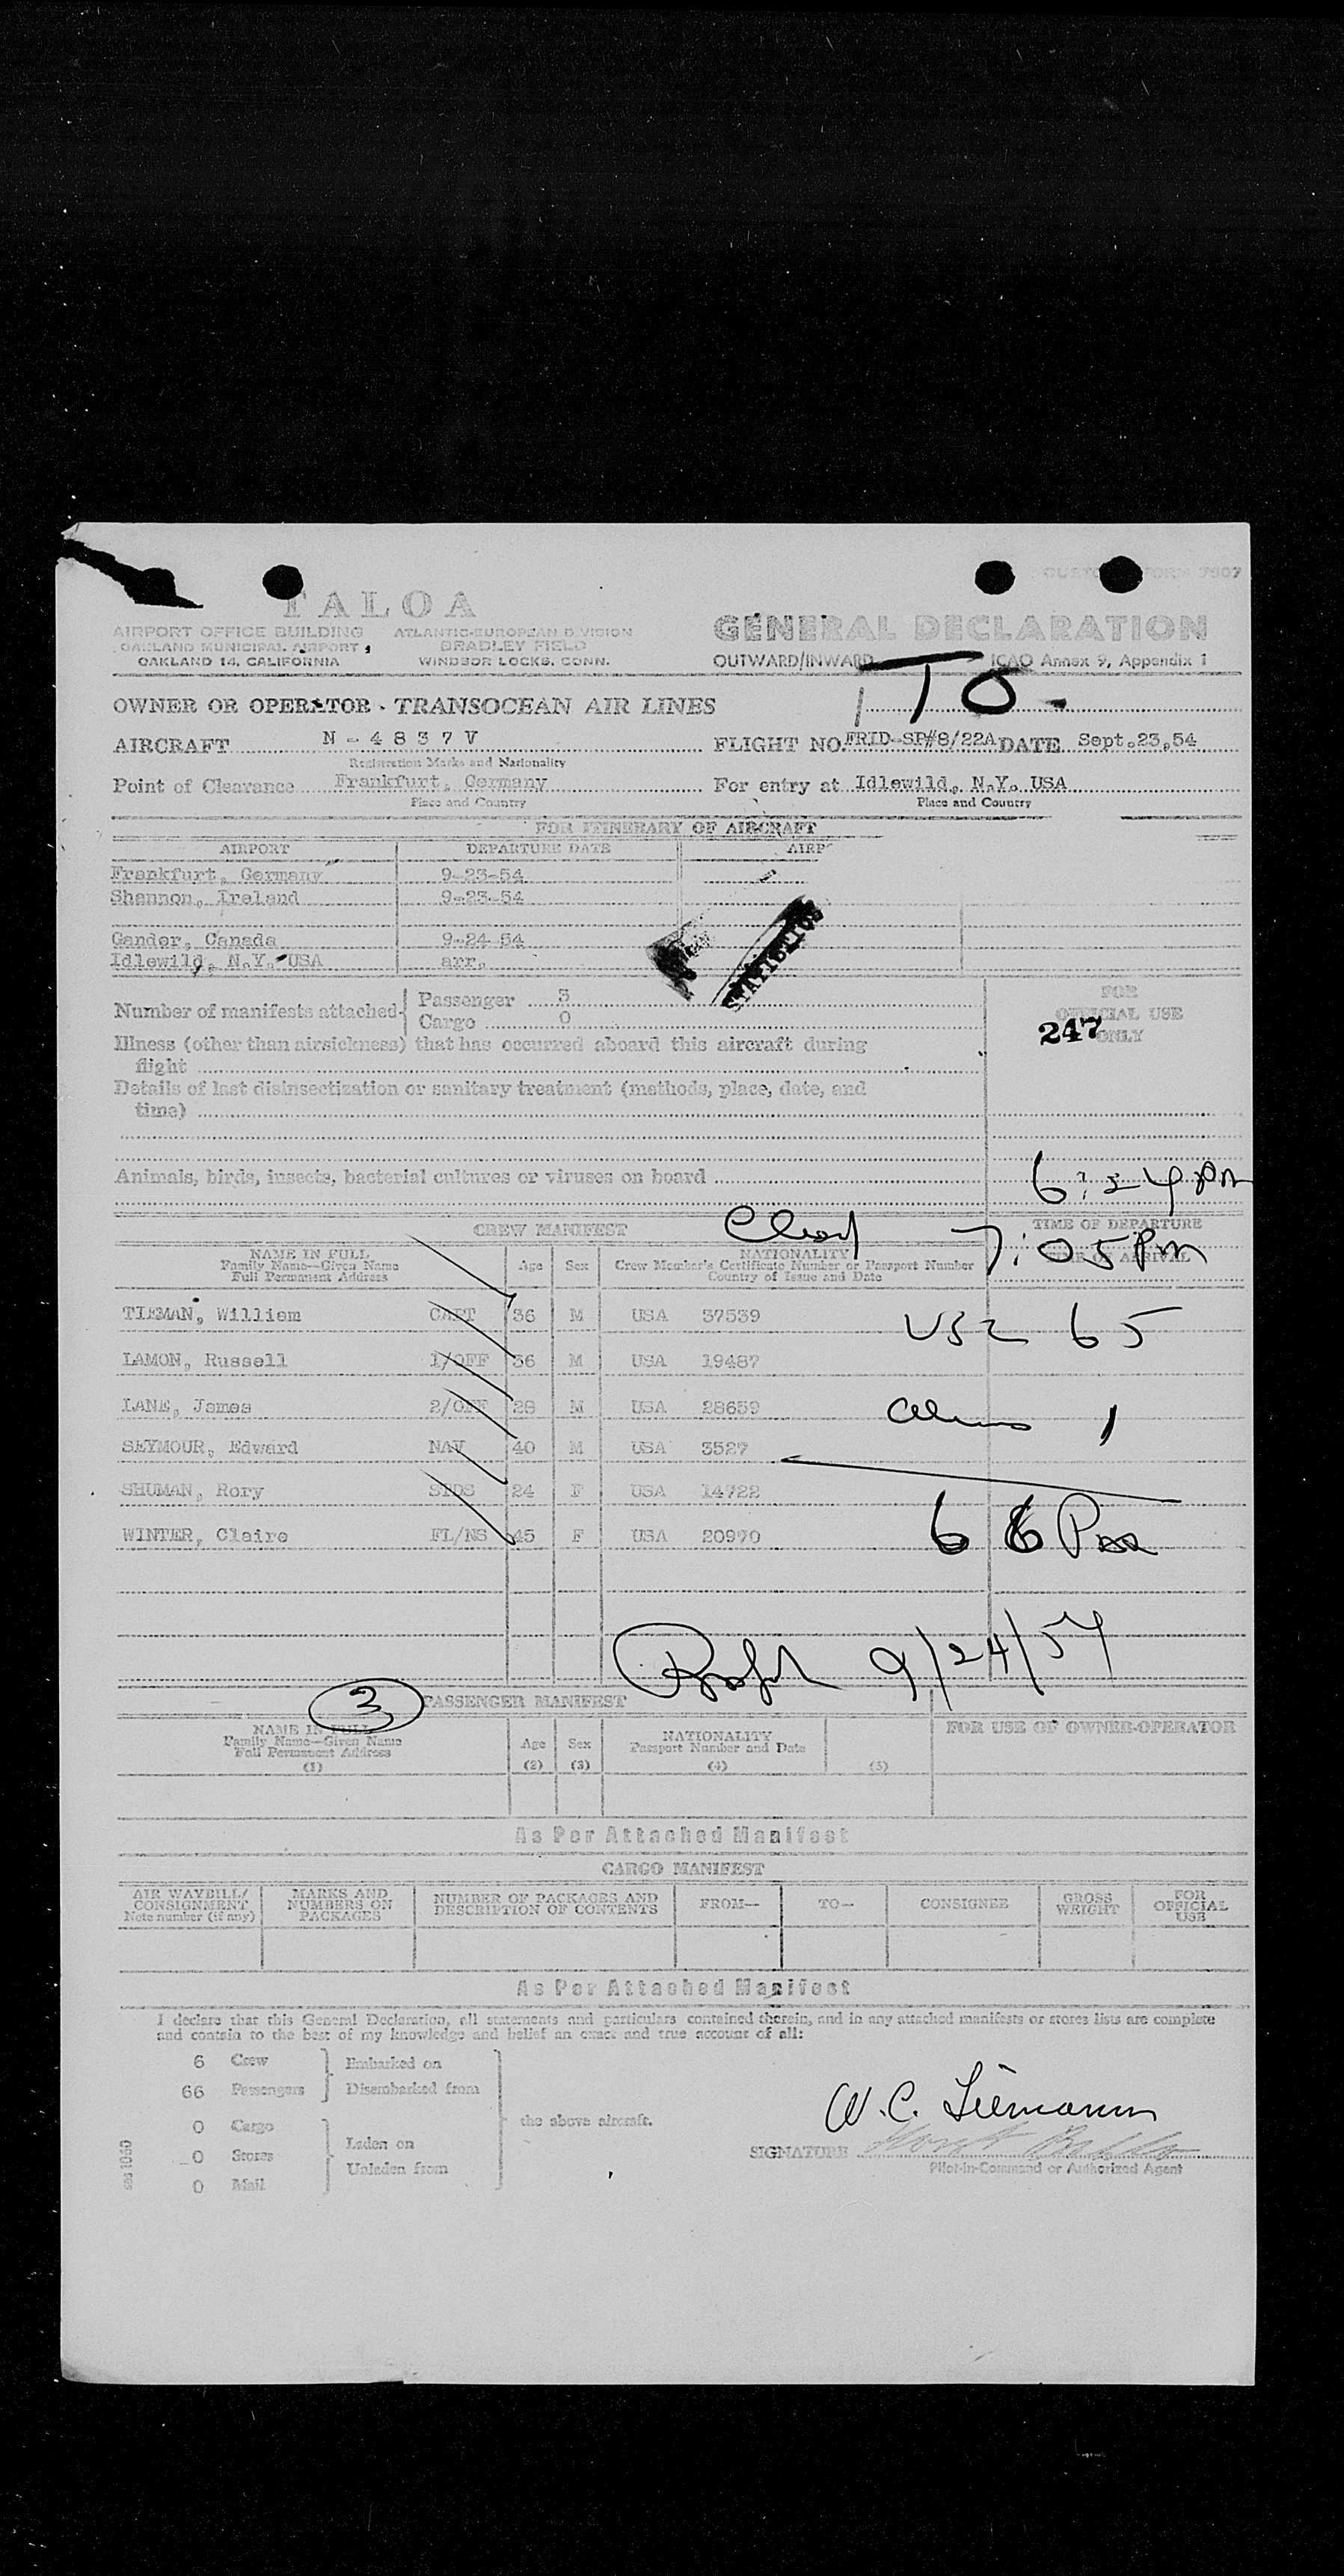 CUSTOMS FORM 7507
TALOA
AIRPORT OFFICE BUILDING
OAKLAND MUNICIPAL AIRPORT
OAKLAND 14, CALIFORNIA
ATLANTIC-EUROPEAN DIVISION
BRADLEY FIELD
WINDSOR LOCKS, CONN.
GENERAL DECLARATION
OUTWARD/INWARD ICAO Annex 9, Appendix 1
TO -
OWNER OR OPERATOR - TRANSOCEAN AIR LINES
AIRCRAFT N - 4 8 3 7 V FLIGHT NO. FRID-SP#8/22A DATE Sept.23,54
Registration Marks and Nationality
Point of Clearance Frankfurt, Germany For entry at Idlewild, N.Y. USA
Place and Country Place and Country
FOR ITINERARY OF AIRCRAFT
AIRPORT DEPARTURE DATE AIRP
Frankfurt, Germany 9-23-54
Shannon, Ireland 9-23-54
Gander, Canada 9-24-54
Idlewild, N.Y. USA arr.
STATISTICS
Number of manifests attached Passenger 3
Cargo 0
FOR
OFFICIAL USE
ONLY
247
Illness (other than airsickness) that has occurred aboard this aircraft during
flight
Details of last disinsectization or sanitary treatment (methods, place, date, and
time)
Animals, birds, insects, bacterial cultures or viruses on board
6:24 PM
CREW MANIFEST
TIME OF DEPARTURE
7:05 PM
ARRIVAL
NAME IN FULL
Family Name—Given Name
Full Permanent Address
Age Sex
NATIONALITY
Crew Member's Certificate Number or Passport Number
Country of Issue and Date
TIEMAN, William CAPT 36 M USA 37539
USC 65
LAMON, Russell 1/OFF 36 M USA 19487
LANE, James 2/OFF 28 M USA 28659
Aliens 1
SEYMOUR, Edward NAV 40 M USA 3527
SHUMAN, Rory STDS 24 F USA 14722
WINTER, Claire FL/NS 45 F USA 20970
66 Pax
9/24/54
3
PASSENGER MANIFEST
NAME IN FULL
Family Name—Given Name
Full Permanent Address
(1)
Age
(2)
Sex
(3)
NATIONALITY
Passport Number and Date
(4)
(5)
FOR USE OF OWNER-OPERATOR
As Per Attached Manifest
CARGO MANIFEST
AIR WAYBILL/
CONSIGNMENT
Note number (if any)
MARKS AND
NUMBERS ON
PACKAGES
NUMBER OF PACKAGES AND
DESCRIPTION OF CONTENTS
FROM—
TO—
CONSIGNEE
GROSS
WEIGHT
FOR
OFFICIAL
USE
As Per Attached Manifest
I declare that this General Declaration, all statements and particulars contained therein, and in any attached manifests or stores lists are complete
and contain to the best of my knowledge and belief an exact and true account of all:
6 Crew
66 Passengers
Embarked on
Disembarked from
0 Cargo
0 Stores
0 Mail
Laden on
Unladen from
the above aircraft.
W. C. Tiemann
SIGNATURE
Pilot-in-Command or Authorized Agent